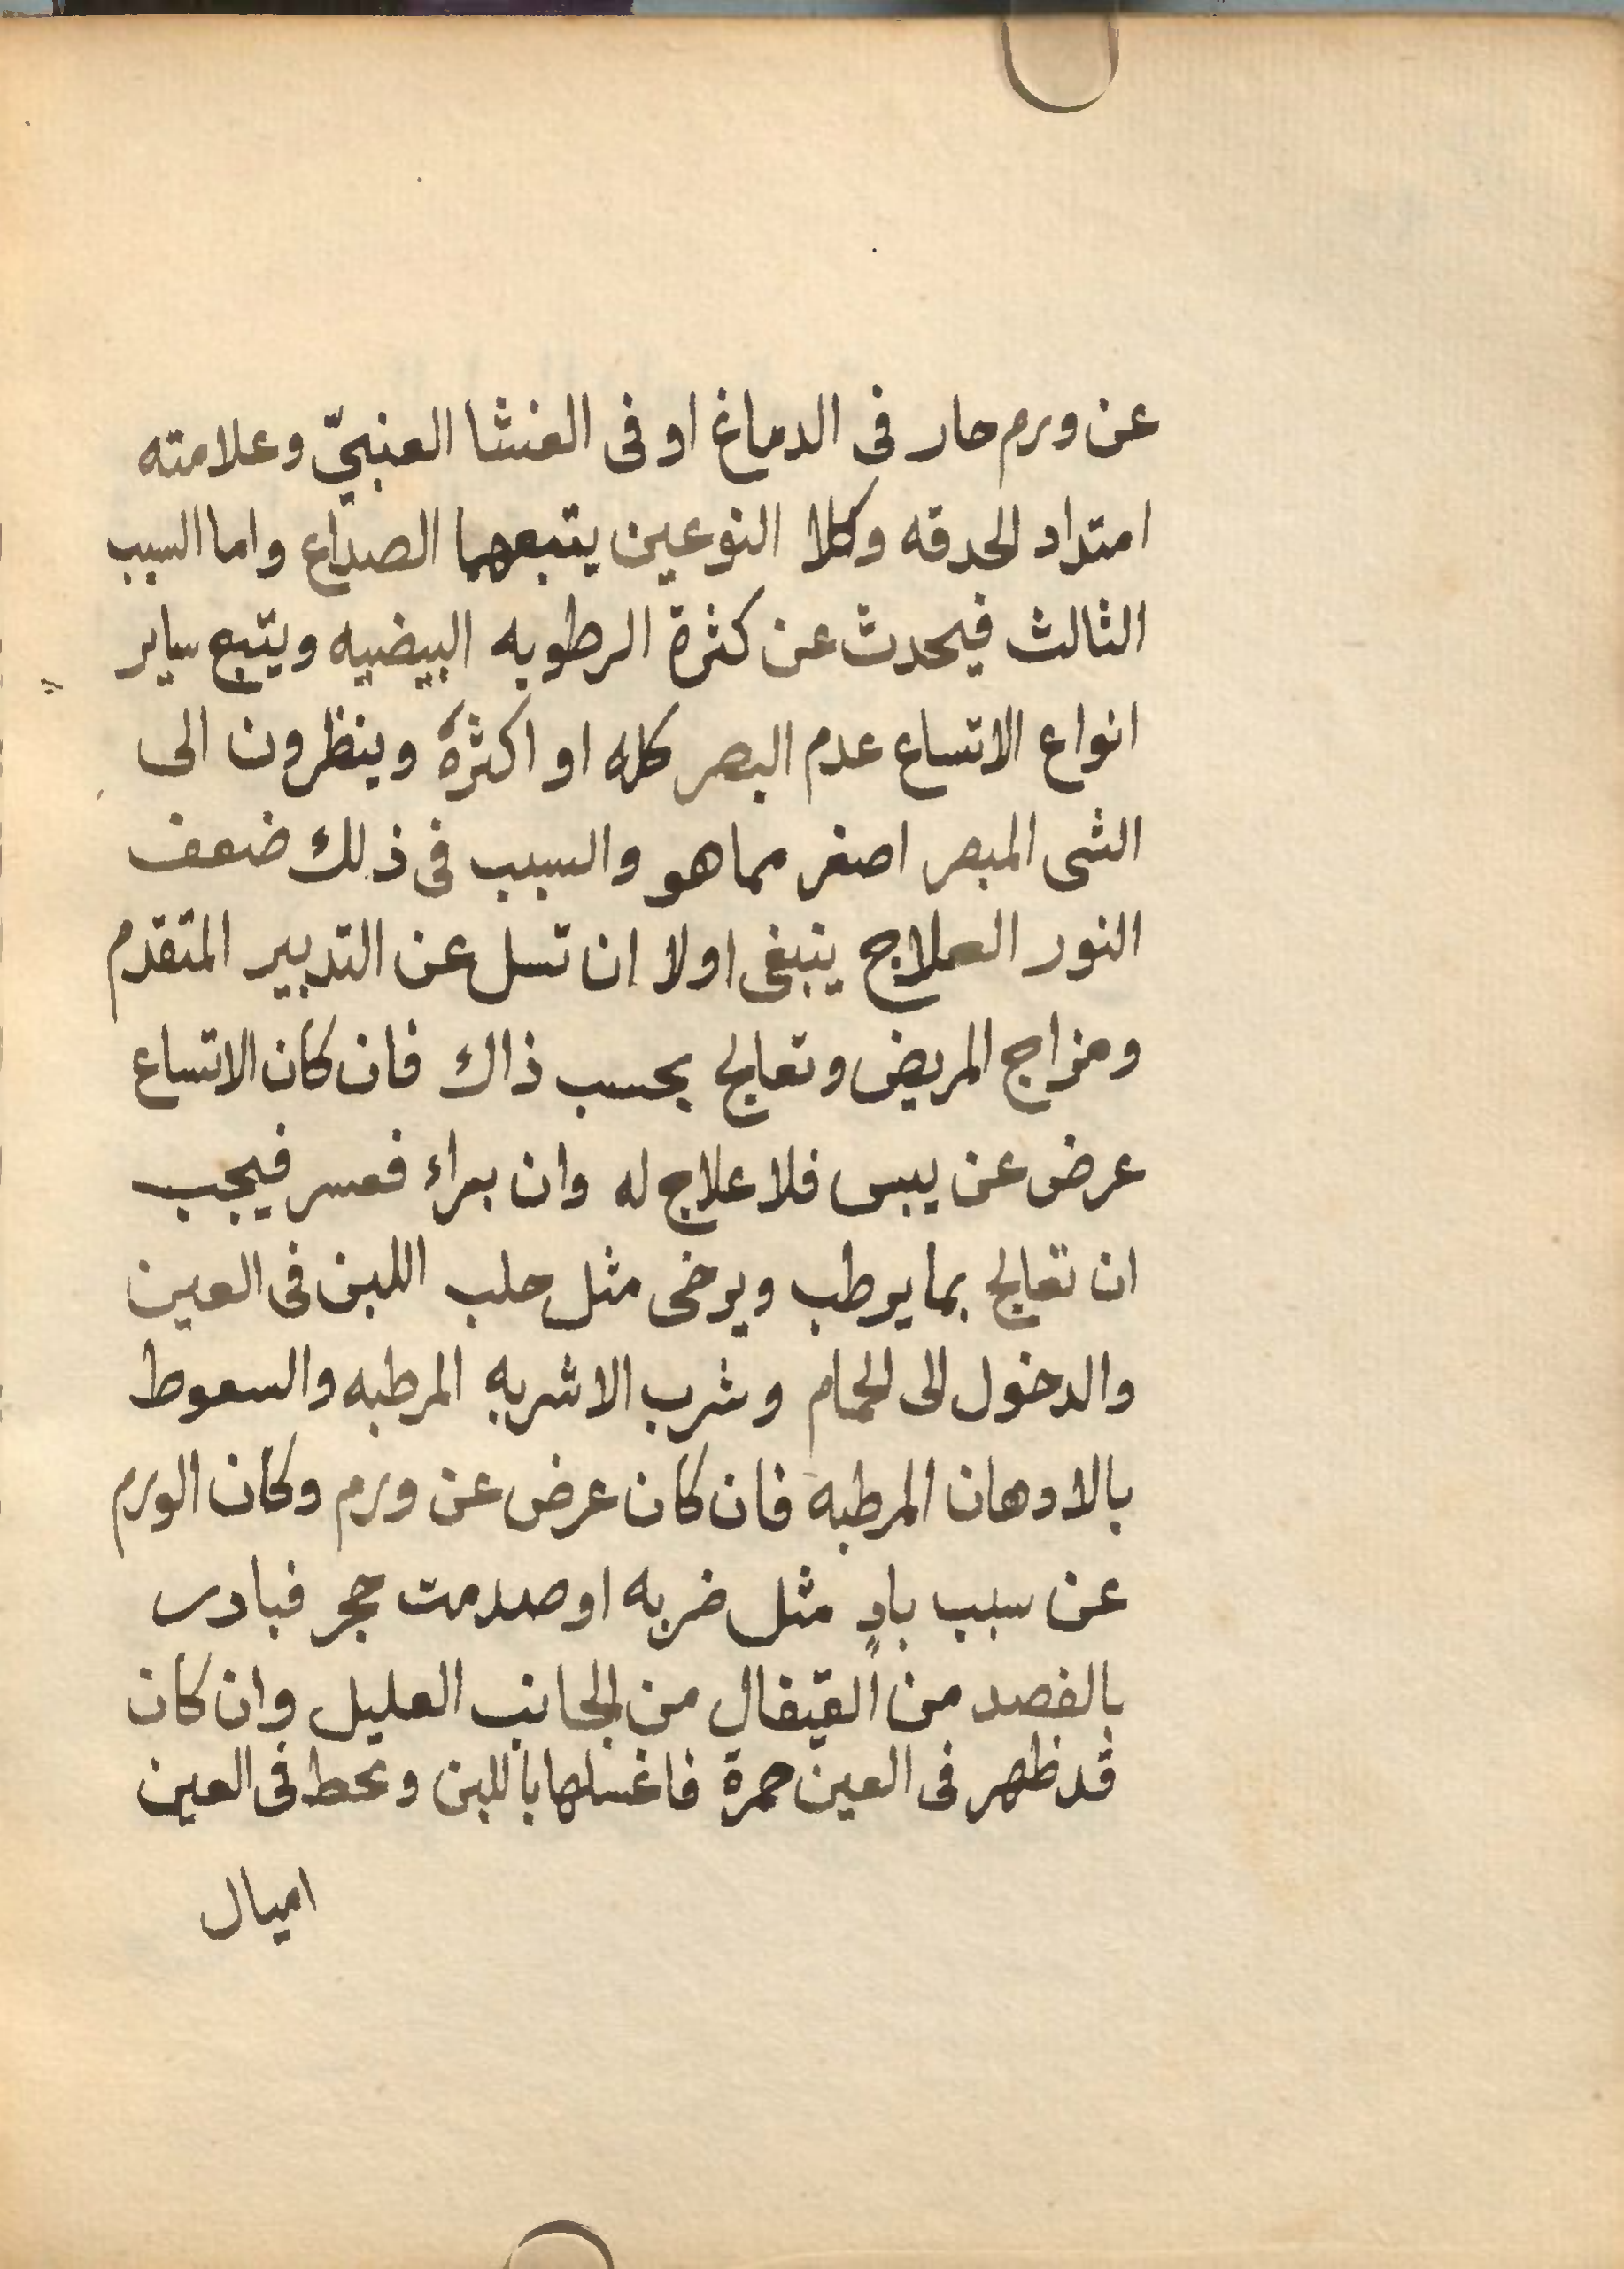 عن ورم حار فى الدماغ او فى الغشا العنبىّ وعلامته
امتداد الحدقه وكلا النوعين يتبعهما الصداع واما السبب
الثالث فيحدث عن كثرة الرطوبه البيضيه ويتبع ساير
انواع الاتساع عدم البصر كله او اكثره وينظرون الى
الشى المبصر اصغر مما هو والسبب فى ذلك ضعف
النور العلاج ينبغى اولا ان تسل عن التدبير المتقدم
ومزاج المريض وتعالج بحسب ذاك فان كان الاتساع
عرض عن يبس فلا علاج له وان براء فعسر فيجب
ان تعالج بما يرطب ويرخى مثل حلب اللبن فى العين
والدخول الى الحمام وشرب الاشربه المرطبه والسعوط
بالادهان المرطبه فان كان عرض عن ورم وكان الورم
عن سبب بادٍ مثل ضربه او صدمت حجر فبادر
بالفصد من القيفال من الجانب العليل وان كان
قد ظهر فى العين حمرة فاغسلها باللبن وتحط فى العين
اميال